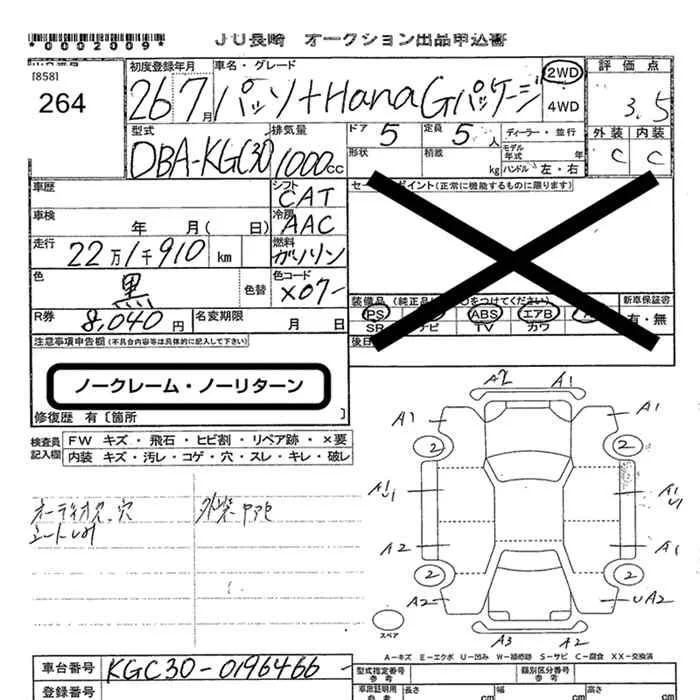 *0002009*
JU長崎 オークション出品申込書
[858]
264
初度登録年月
26 7月
車名・グレード
パッソ+Hana Gパッケージ
2WD
4WD
評価点
3.5
型式
DBA-KGC30
排気量
1000cc
ドア 5
定員 5人
形状
積載 kg
ディーラー・並行
モデル年式 年
ハンドル 左・右
外装 内装
C C
車歴
シフト
CAT
車検 年 月( 日)
冷房
AAC
走行 22万1千910 km
燃料
ガソリン
色 黒 色替
色コード
X07-
R券 8,040円
名変期限 月 日
セールスポイント(正常に機能するものに限ります)
装備品
新車保証書
有・無
PS
ABS
エアB
SR
ナビ
TV
カワ
後日
注意事項申告欄(不具合内容等は具体的に記入して下さい)
ノークレーム・ノーリターン
修復歴 有〔箇所 〕
検査員記入欄
FW キズ・飛石・ヒビ割・リペア跡・×要
内装 キズ・汚レ・コゲ・穴・スレ・キレ・破レ
A2 A1
A1 A1
2 2
A2 A1
2 2
A2 UA2
A3 A2
スペア
A=キズ E=エクボ U=凹み W=補修跡 S=サビ C=腐食 XX=交換済
車台番号 KGC30-0196466
登録番号
型式指定番号 参考
類別区分番号 参考
車庫証明用 参考
長さ cm
幅 cm
高さ cm